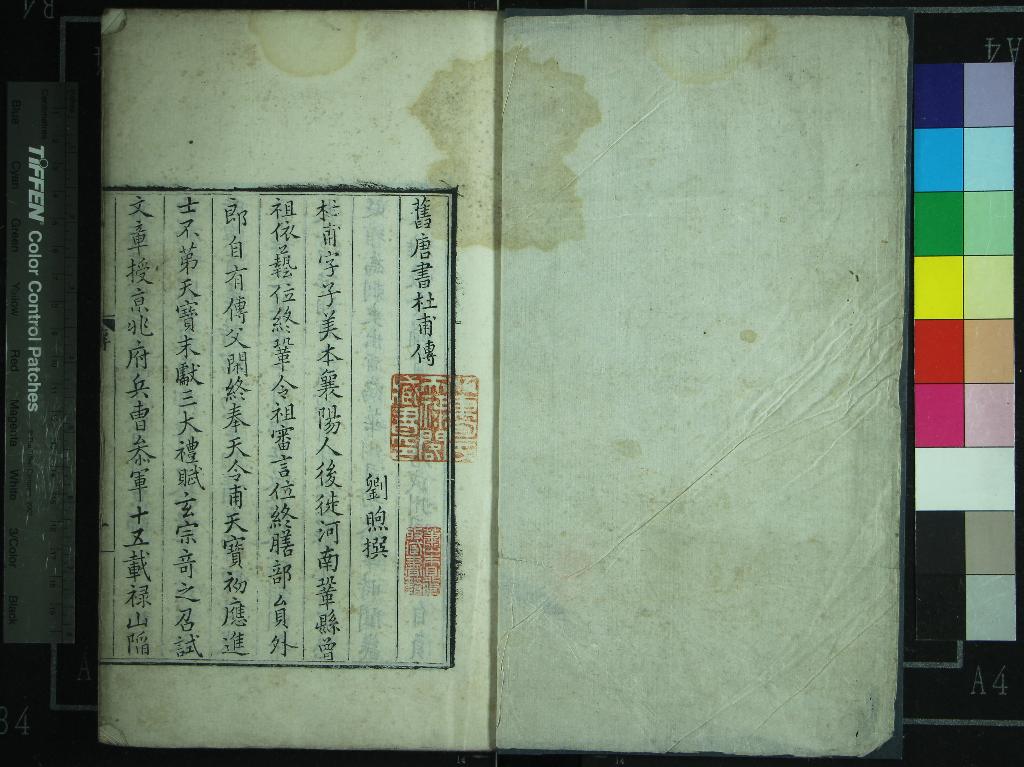 舊唐書杜甫傳
劉煦撰
杜甫字子美本襄陽人後徙河南鞏縣曾
祖依藝位終鞏令祖審言位終膳部員外
郎自有傳父閑終奉天令甫天寶初應進
士不第天寶末獻三大禮賦玄宗竒之召試
文章授京兆府兵曹叅軍十五載祿山䧟
TIFFEN Color Control Patches
Blue
Cyan
Green
Yellow
Red
Magenta
White
3/Color
Black
A4
A4